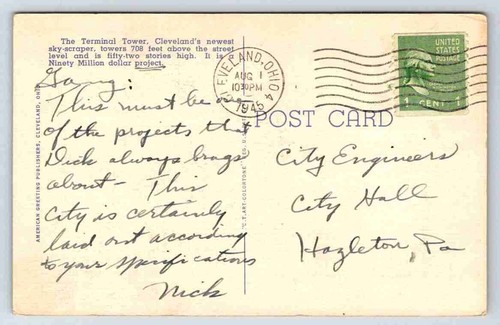 The Terminal Tower, Cleveland's newest
sky-scraper, towers 708 feet above the street
level and is fifty-two stories high. It is a
Ninety Million dollar project.
Gang:
This must be one
of the projects that
Dick always brags
about - This
City is certainly
laid out according
to your specifications
Nick
AMERICAN GREETING PUBLISHERS, CLEVELAND, OHIO
C.T. ART-COLORTONE
POST CARD
CLEVELAND, OHIO 4
AUG 1
10 PM
1945
UNITED
STATES
POSTAGE
1 CENT 1
City Engineers
City Hall
Hazleton, Pa